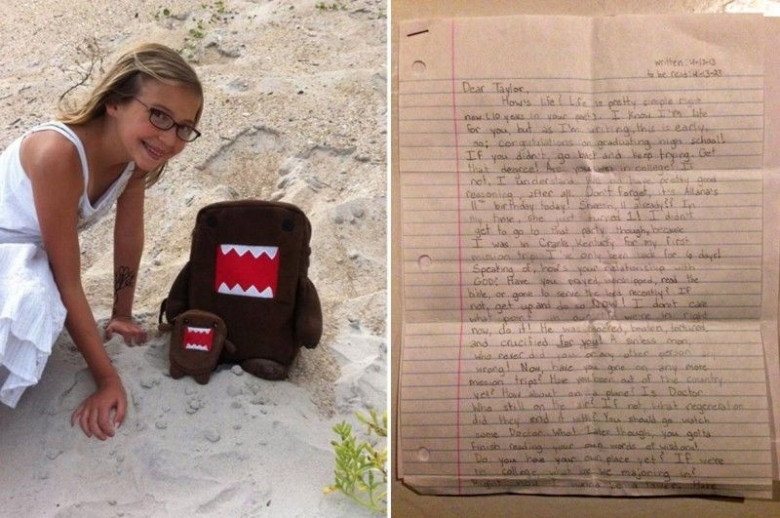 written: 4-13-13
to be read: 4-13-23
Dear Taylor,
How's life? Life is pretty simple right
now (10 years in your past). I know I'm late
for you, but as I'm writing, this is early,
so; congratulations on graduating high school!
If you didn't, go back and keep trying. Get
that degree! Are you in college? If
not, I understand. have pretty good
reasoning, after all. Don't forget, it's Allana's
11th birthday today! Sheesh, 11 already?! In
my time, she just turned 1! I didn't
get to go to that party though, because
I was in Cranks, Kentucky for my first
mission trip. I've only been back for 6 days!
Speaking of, how's your relationship with
GOD? Have you prayed, worshiped, read the
bible, or gone to serve the lord recently? If
not, get up and do so NOW! I don't care
what point in life we're in right
now, do it! He was mocked, beaten, tortured,
and crucified for you! A sinless man,
who never did you or any other person any
wrong! Now, have you gone on any more
mission trips? Have you been out of the country
yet? How about on a plane? Is Doctor
Who still on the air? If not, what regeneration
did they end it with? You should go watch
some Doctor Who! Later though, you gotta
finish reading your own words of wisdom!
Do you have your own place yet? If we're
in college, what are we majoring in?
Right now I wanna be a lawyer. Have